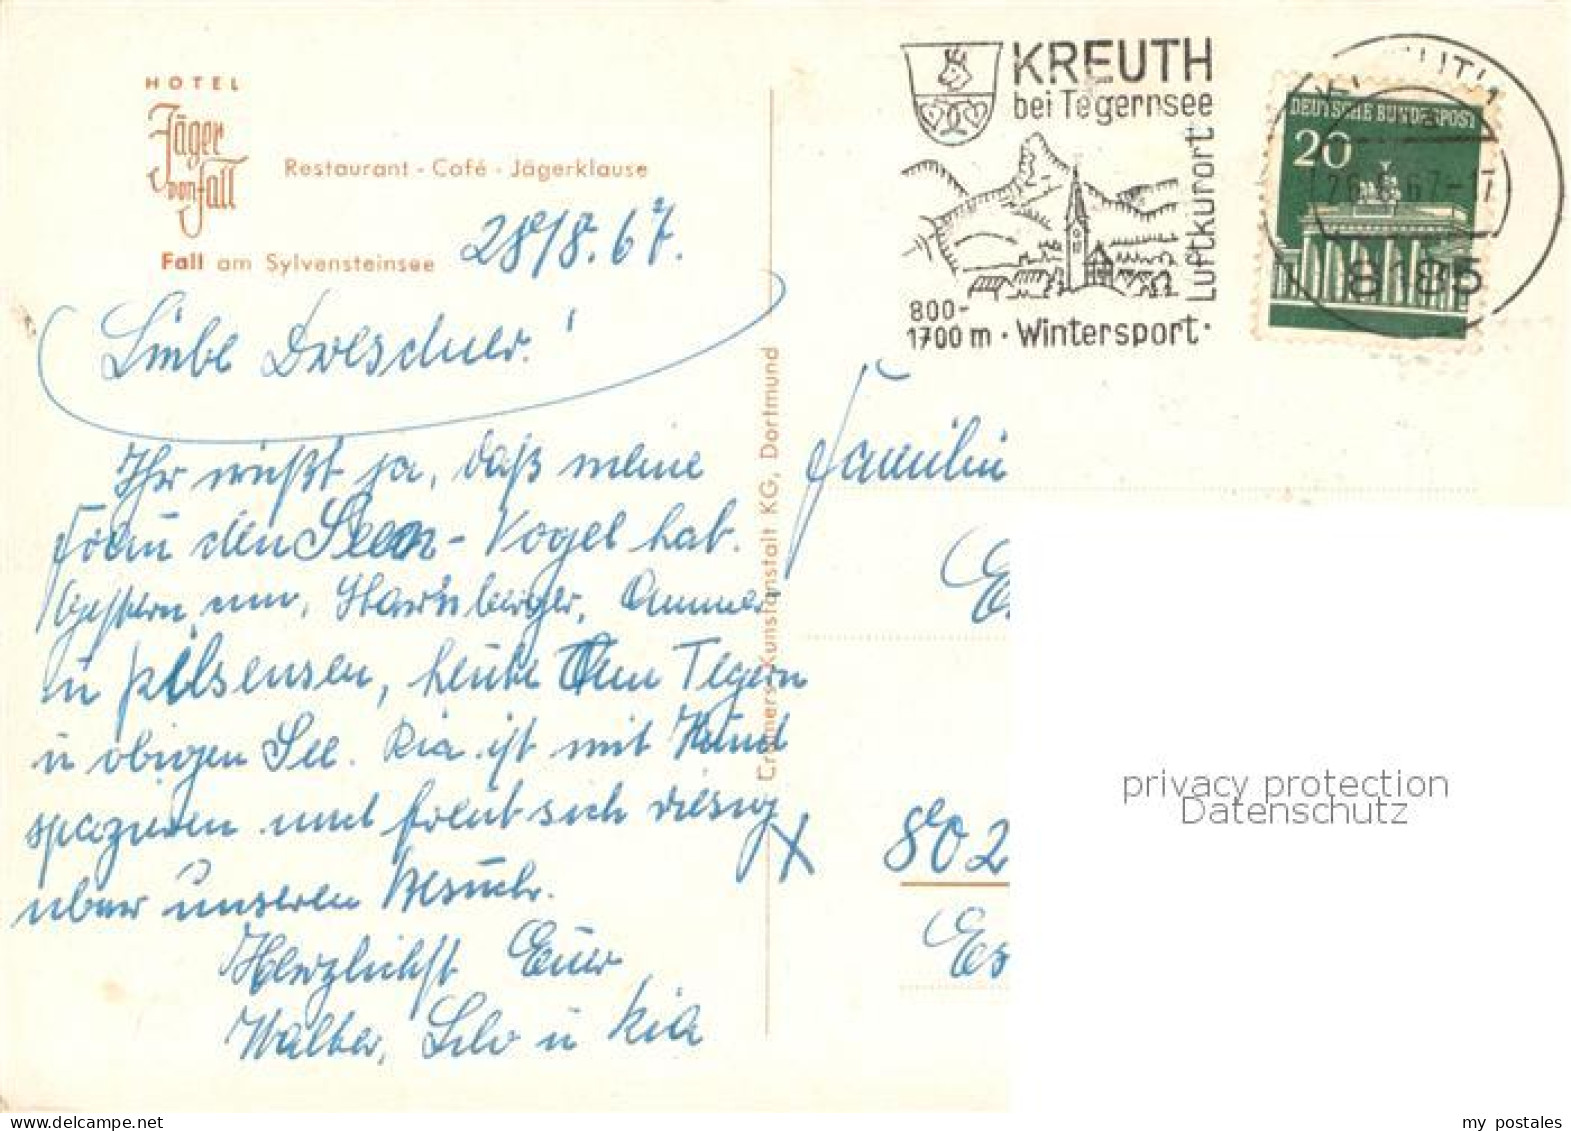 HOTEL
Jäger
von Fall
Restaurant - Café - Jägerklause
Fall am Sylvensteinsee
28/8.67.
Liebe Dreschner!
Ihr wißt ja, daß meine
Frau den Seen-Vogel hab.
Gestern, Starnberger, Ammer,
u Pilsensee, heute Tegern
u obigen See. Ria ist mit Hund
spazieren und freut sich riesig
über unseren Besuch.
Herzlichst Euer
Walter, Lilo u Ria
Cramers Kunstanstalt KG, Dortmund
KREUTH
bei Tegernsee
Luftkurort
800-
1700 m · Wintersport ·
DEUTSCHE BUNDESPOST
20
8185
Familie
E
802
Es
privacy protection
Datenschutz
my postales